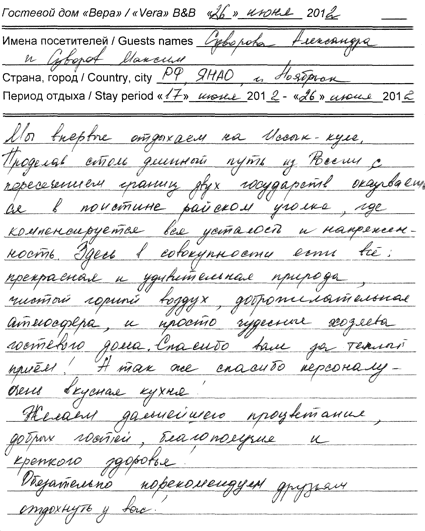 Гостевой дом «Вера» / «Vera» B&B «26» июня 2012
Имена посетителей / Guests names Суворова Александра
и Суворов Максим
Страна, город / Country, city РФ, ЯНАО, г. Ноябрьск
Период отдыха / Stay period «17» июня 2012 - «26» июня 2012
Мы впервые отдыхаем на Иссык-куле,
Проделав столь длинный путь из России, с
пересечением границ двух государств оказываем-
ся в поистине райском уголке, где
компенсируется вся усталость и напряжен-
ность. Здесь в совокупности есть всё:
прекрасная и удивительная природа,
чистый горный воздух, доброжелательная
атмосфера, и просто чудесные хозяева
гостевого дома. Спасибо вам за теплый
приём! А так же спасибо персоналу-
очень вкусная кухня!
Желаем дальнейшего процветания,
добрых гостей, благополучие и
крепкого здоровья!
Обязательно порекомендуем друзьям
отдохнуть у вас!